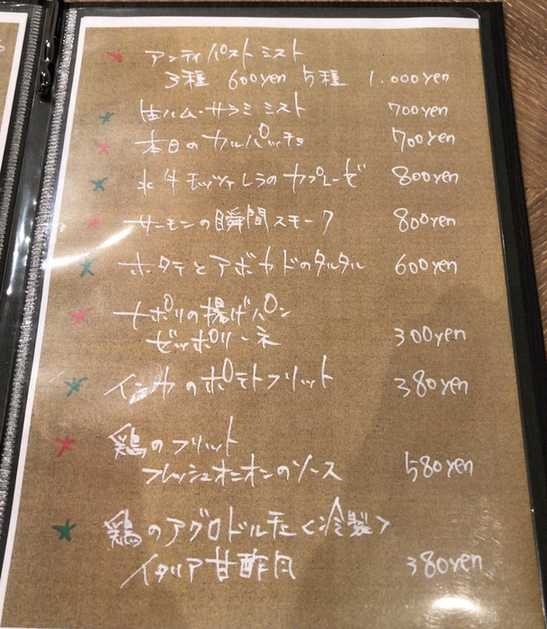 アンティパストミスト
3種 600yen 5種 1.000yen
生ハム・サラミミスト 700yen
本日のカルパッチョ 700yen
水牛モッツァレラのカプレーゼ 800yen
サーモンの瞬間スモーク 800yen
ホタテとアボカドのタルタル 600yen
ナポリの揚げパン
ゼッポリーネ 300yen
インカのポテトフリット 380yen
鶏のフリット
フレッシュオニオンのソース 580yen
鶏のアグロドルチェ<冷製>
イタリア甘酢肉 380yen